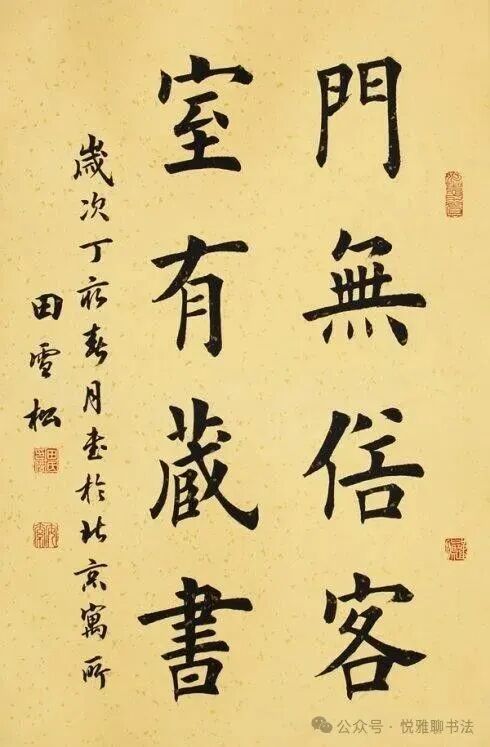 門無俗客
室有藏書
歲次丁亥春月書於北京寓所
田雪松
公众号 · 悦雅聊书法